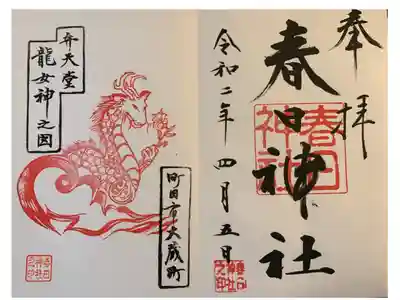 奉拝
春日神社
春日神社
令和二年四月五日
町田市大蔵町
弁天堂
龍女神之図